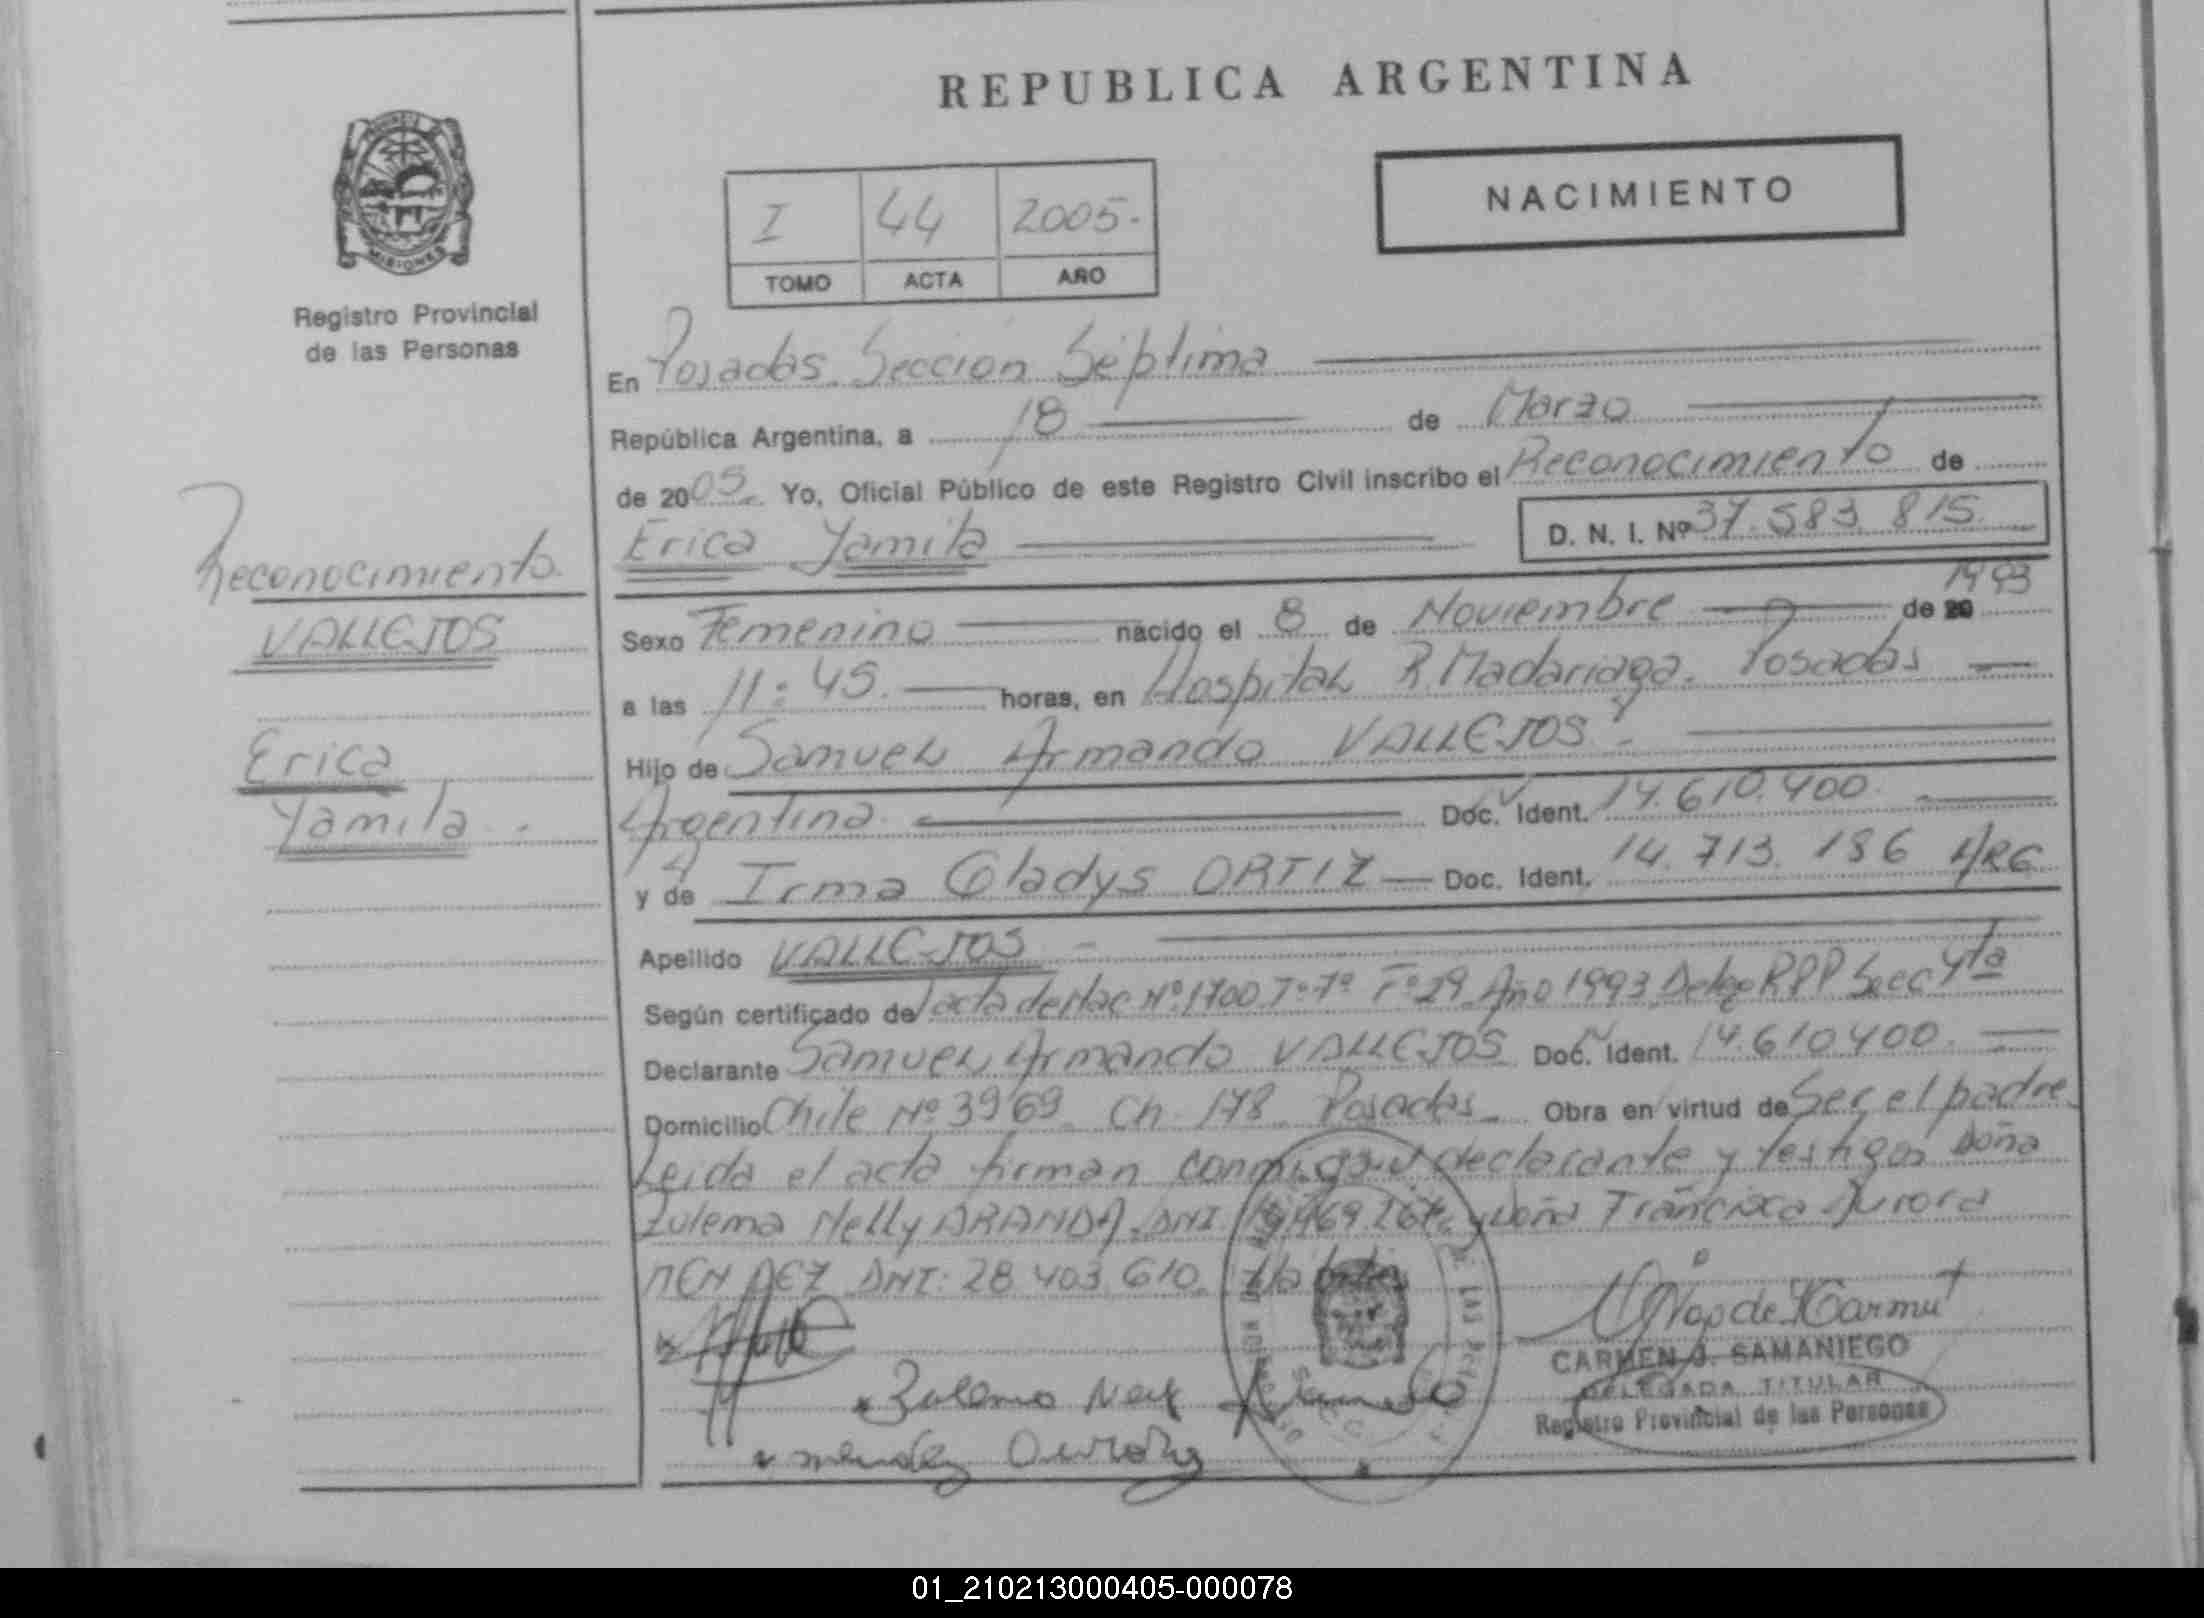 REPUBLICA ARGENTINA
NACIMIENTO
I 44 2005.
TOMO ACTA AÑO
MISIONES
Registro Provincial
de las Personas
Reconocimiento
VALLEJOS
Erica
Yamila
En Posadas Sección Séptima
República Argentina, a 18 de Marzo
de 2005 Yo, Oficial Público de este Registro Civil inscribo el Reconocimiento de
Erica Yamila D. N. I. Nº 37.583.815
Sexo Femenino nacido el 8 de Noviembre de 20 1993
a las 11:45. horas, en Hospital R. Madariaga. Posadas
Hijo de Samuel Armando VALLEJOS
Argentina Doc. Ident. 14.610.400.
y de Irma Gladys ORTIZ Doc. Ident. 14.713.186 ARG
Apellido VALLEJOS
Según certificado de acta de Nac Nº 1700 Tº 7º Fº 29 Año 1993 Deleg RPP Secc 4ta
Declarante Samuel Armando VALLEJOS Doc. Ident. 14.610400.
Domicilio Chile Nº 3969 Ch. 178 Posadas Obra en virtud de Ser el padre
Leida el acta firman conmigo declarante y testigos doña
Zulema Nelly ARANDA DNI y doña Francisca Aurora
MENDEZ DNI: 28.403.610.
Zulema
mendez
CARMEN J. SAMANIEGO
DELEGADA TITULAR
Registro Provincial de las Personas
01_210213000405-000078